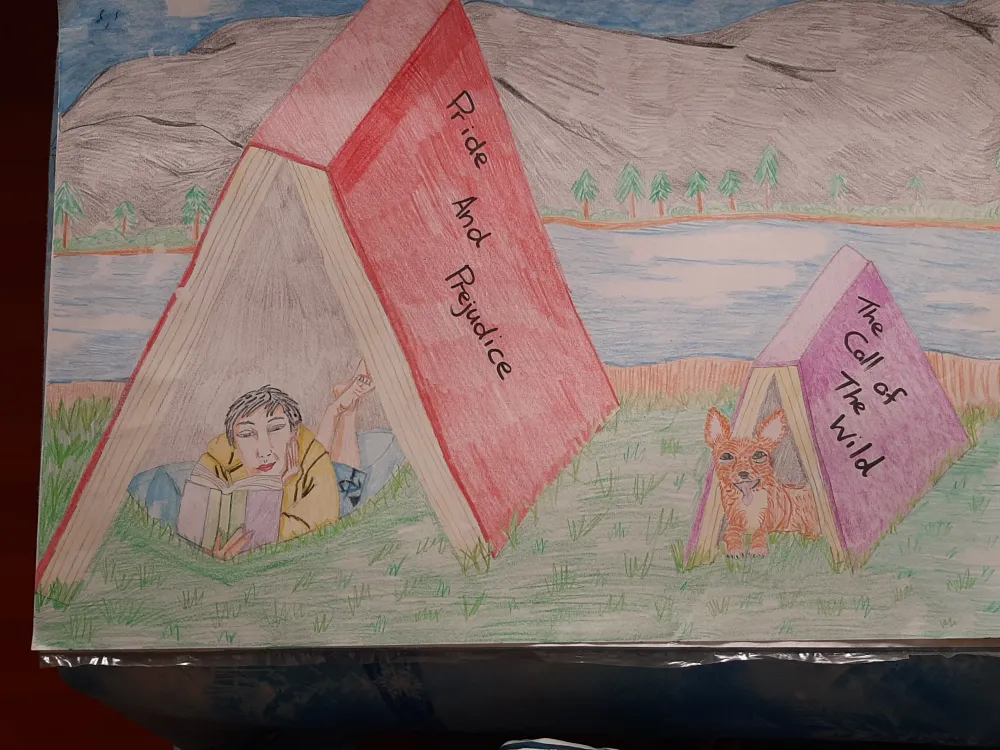 Pride And Prejudice
The
Call of
The Wild